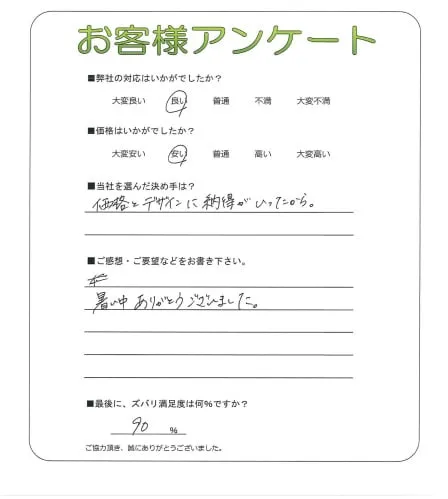 お客様アンケート
■弊社の対応はいかがでしたか？
大変良い 良い 普通 不満 大変不満
■価格はいかがでしたか？
大変安い 安い 普通 高い 大変高い
■当社を選んだ決め手は？
価格とデザインに納得がいったから。
■ご感想・ご要望などをお書き下さい。
暑い中ありがとうございました。
■最後に、ズバリ満足度は何%ですか？
90 %
ご協力頂き、誠にありがとうございました。